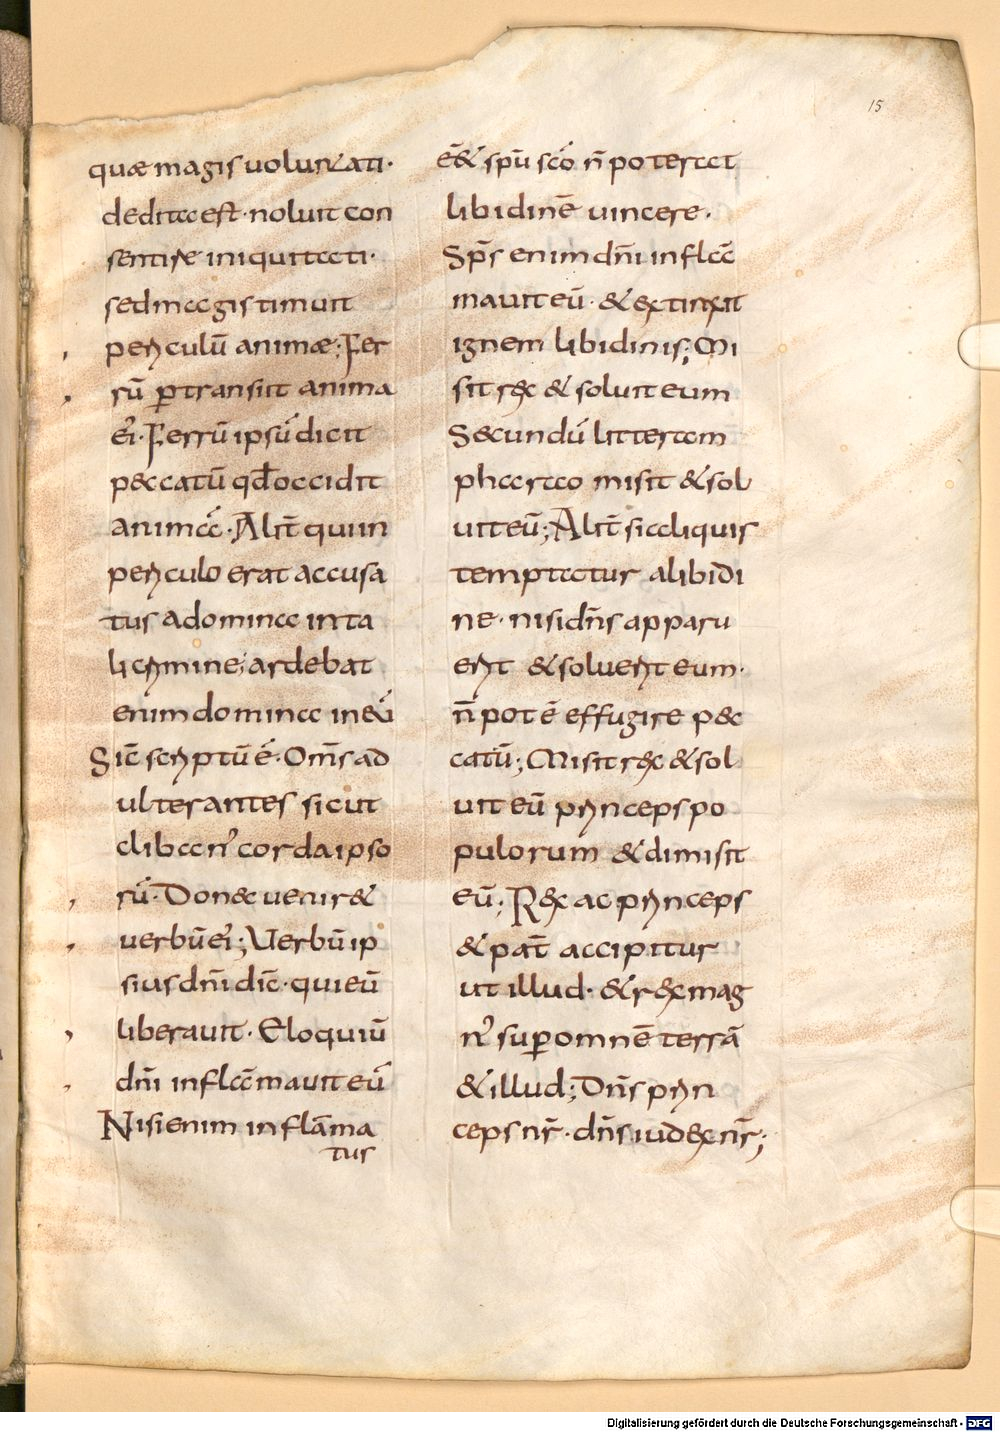 15
quae magis voluntati·
dedita est· noluit con
sentire iniquitati·
sed magis timuit
periculū animae; Fer
rū ꝑtransiit anima
ei· Ferrū ipsū dicit
peccatū qđ occidit
animā· Alit̄ qui in
periculo erat accusa
tus a domina in ta
li crimine; ardebat
enim domina in eū
Sic̄ scriptū ē· Om̄s ad
ulterantes sicut
clibanꝰ corda ipso
rū· Donec veniret
verbū ei; Verbū ip
sius dn̄i dic̄· qui eū
liberavit· Eloquiū
dn̄i inflāmavit eū
Nisi enim inflāma
tus
ēēt sp̄u sc̄o n̄ poterat
libidinē vincere·
Sp̄s enim dn̄i inflā
mavit eū· & extinxit
ignem libidinis; Mi
sit rex & solvit eum
Secundū litteram
pharao misit & sol
vit eū; Alit̄ si aliquis
temptatur a libidi
ne· nisi dn̄s apparu
erit & solverit eum·
n̄ potē effugire pec
catū; Misit rex & sol
vit eū princeps po
pulorum & dimisit
eū; Rex ac princeps
& pat̄ accipitur
ut illud· & rex mag
nꝰ suꝑ omnē terrā
& illud; Dn̄s prin
ceps nr̄· dn̄s iudex nr̄;
Digitalisierung gefördert durch die Deutsche Forschungsgemeinschaft - DFG